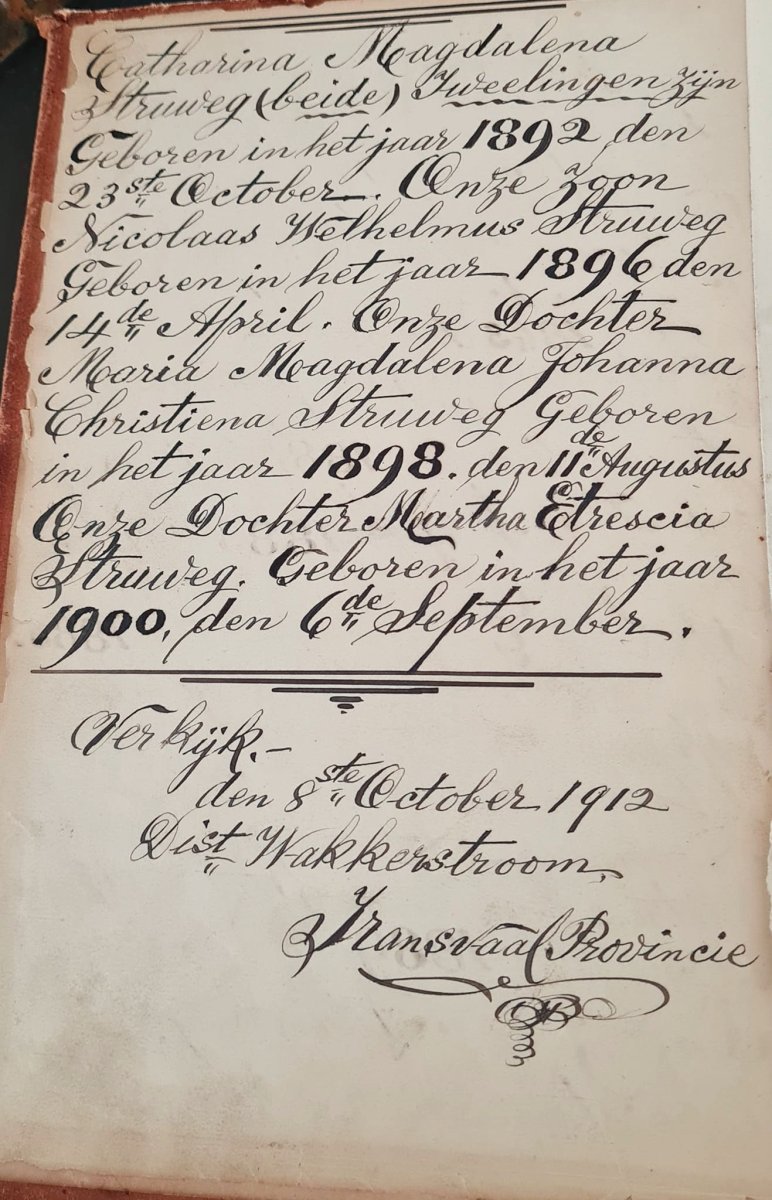 Catharina Magdalena
Struweg (beide) Tweelingen zijn
Geboren in het jaar 1892 den
23ste October. Onze zoon
Nicolaas Welhelmus Struweg
Geboren in het jaar 1896 den
14de April. Onze Dochter
Maria Magdalena Johanna
Christiena Struweg Geboren
in het jaar 1898. den 11de Augustus
Onze Dochter Martha Etrescia
Struweg. Geboren in het jaar
1900, den 6de September.
Verkijk.—
den 8ste October 1912
Dist Wakkerstroom,
Transvaal Provincie